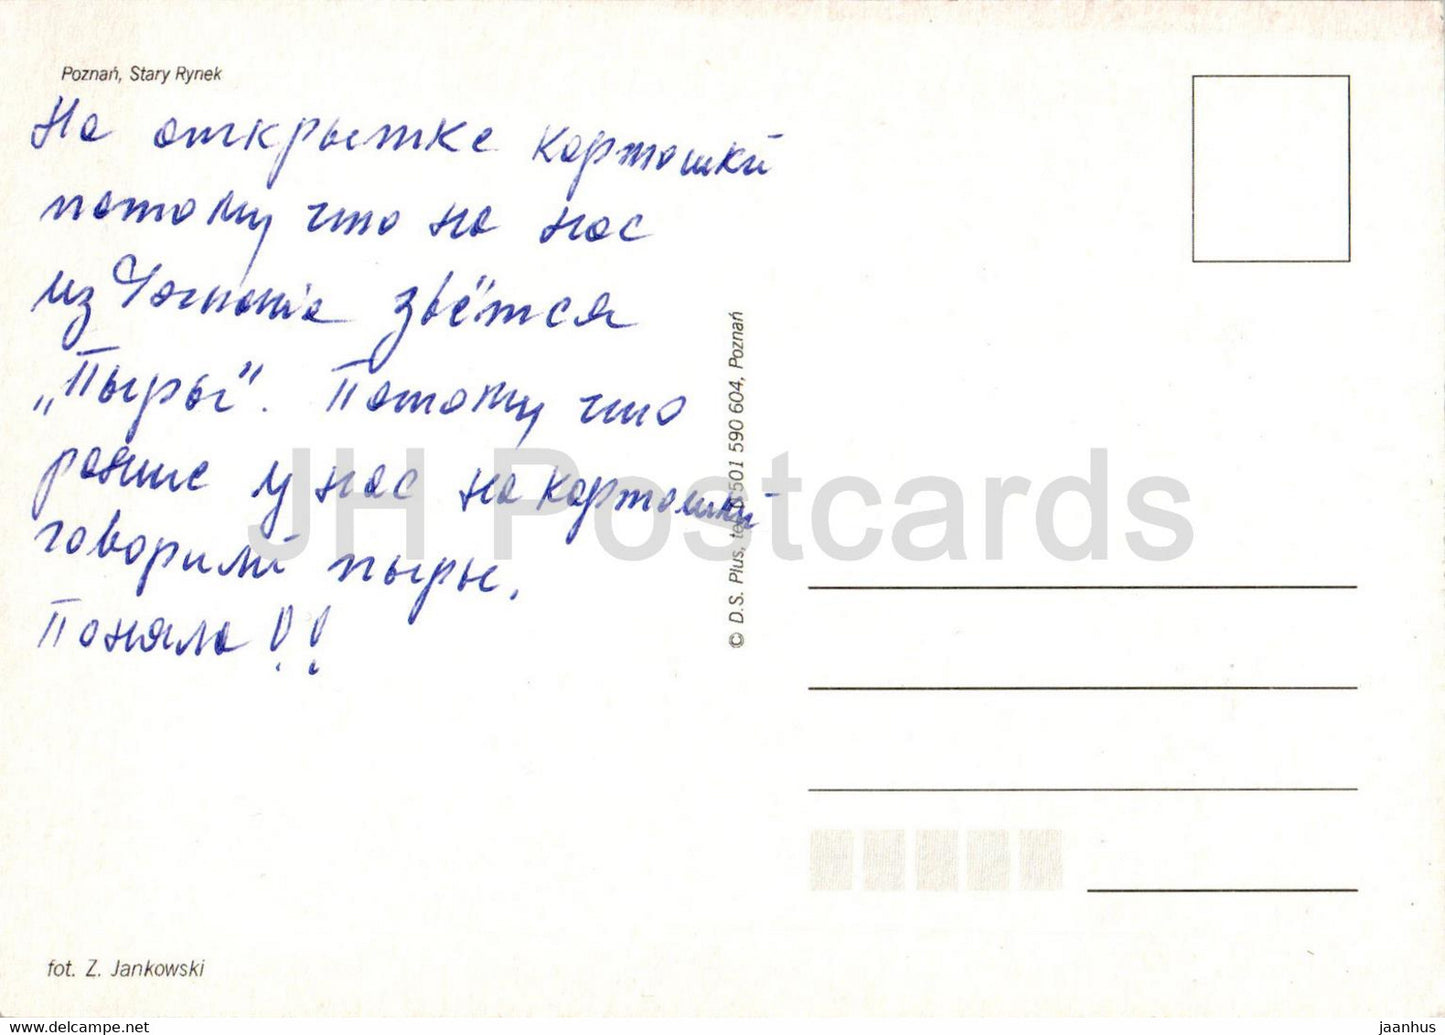 Poznań, Stary Rynek
На открытке картошки
потому что на нас
из звётся
„Пыры". Потому что
ранше у нас на картошки
говорили пыры.
Поняла!!
© D.S. Plus, tel. 0501 590 604, Poznań
JH Postcards
fot. Z. Jankowski
https://www.delcampe.net
jaanhus